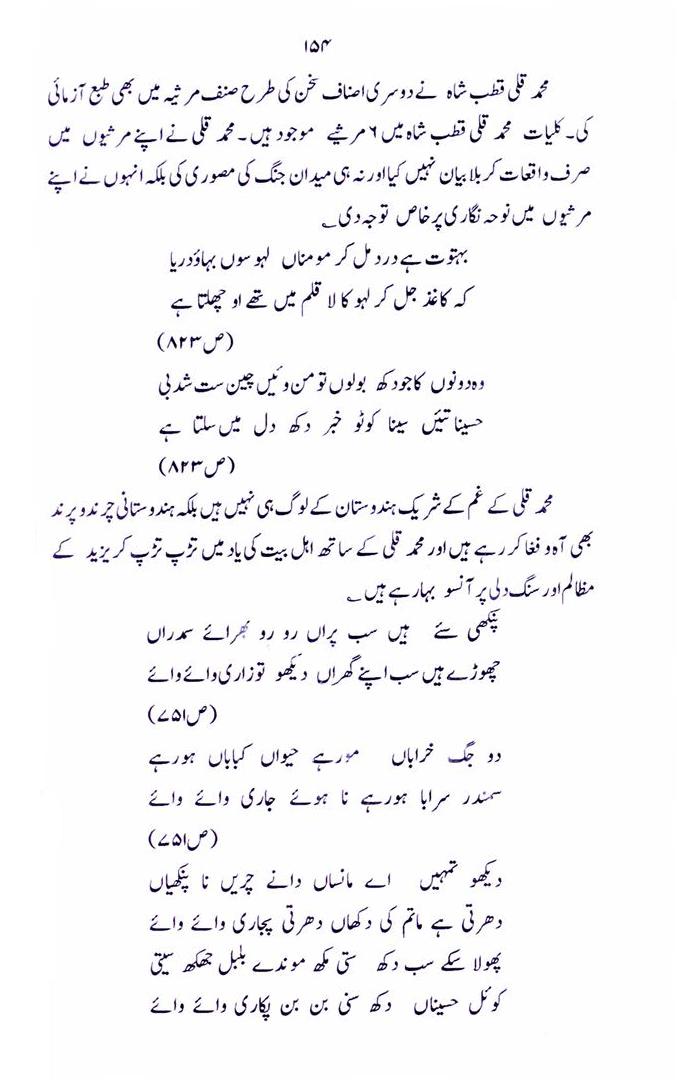 ۱۵۴
محمد قلی قطب شاہ نے دوسری اصناف سخن کی طرح صنف مرثیہ میں بھی طبع آزمائی
کی۔ کلیات محمد قلی قطب شاہ میں ۶ مرثیے موجود ہیں۔ محمد قلی نے اپنے مرثیوں میں
صرف واقعات کربلا بیان نہیں کیا اور نہ ہی میدان جنگ کی مصوری کی بلکہ انہوں نے اپنے
مرثیوں میں نوحہ نگاری پر خاص توجہ دی؂
بہتوت ہے درد مل کر مومناں لہو سوں بہاؤ دریا
کہ کاغذ جل کر لہو کا لا قلم میں تھے او چھلتا ہے
(ص۸۲۳)
وہ دونوں کا جو دکھ بولوں تو من وئیں چین ست شد بی
حسینا تئیں سینا کوٹو خبر دکھ دل میں سلتا ہے
(ص۸۲۳)
محمد قلی کے غم کے شریک ہندوستان کے لوگ ہی نہیں ہیں بلکہ ہندوستانی چرند و پرند
بھی آہ و فغا کر رہے ہیں اور محمد قلی کے ساتھ اہل بیت کی یاد میں تڑپ تڑپ کر یزید کے
مظالم اور سنگ دلی پر آنسو بہا رہے ہیں؂
پنکھی سئے ہیں سب پراں رو رو بھرائے سمدراں
چھوڑے ہیں سب اپنے گھراں دیکھو تو زاری وائے وائے
(ص۷۵۱)
دو جگ خراباں ہورہے حیواں کباباں ہورہے
سمندر سرابا ہورہے نا ہوئے جاری وائے وائے
(ص۷۵۱)
دیکھو تمہیں اے مانساں دانے چریں نا پنکھیاں
دھرتی ہے ماتم کی دکھاں دھرتی پجاری وائے وائے
پھولا سکے سب دکھ ستی مکھ موندے بلبل جھکھ سیتی
کوئل حسیناں دکھ سنی بن بن پکاری وائے وائے